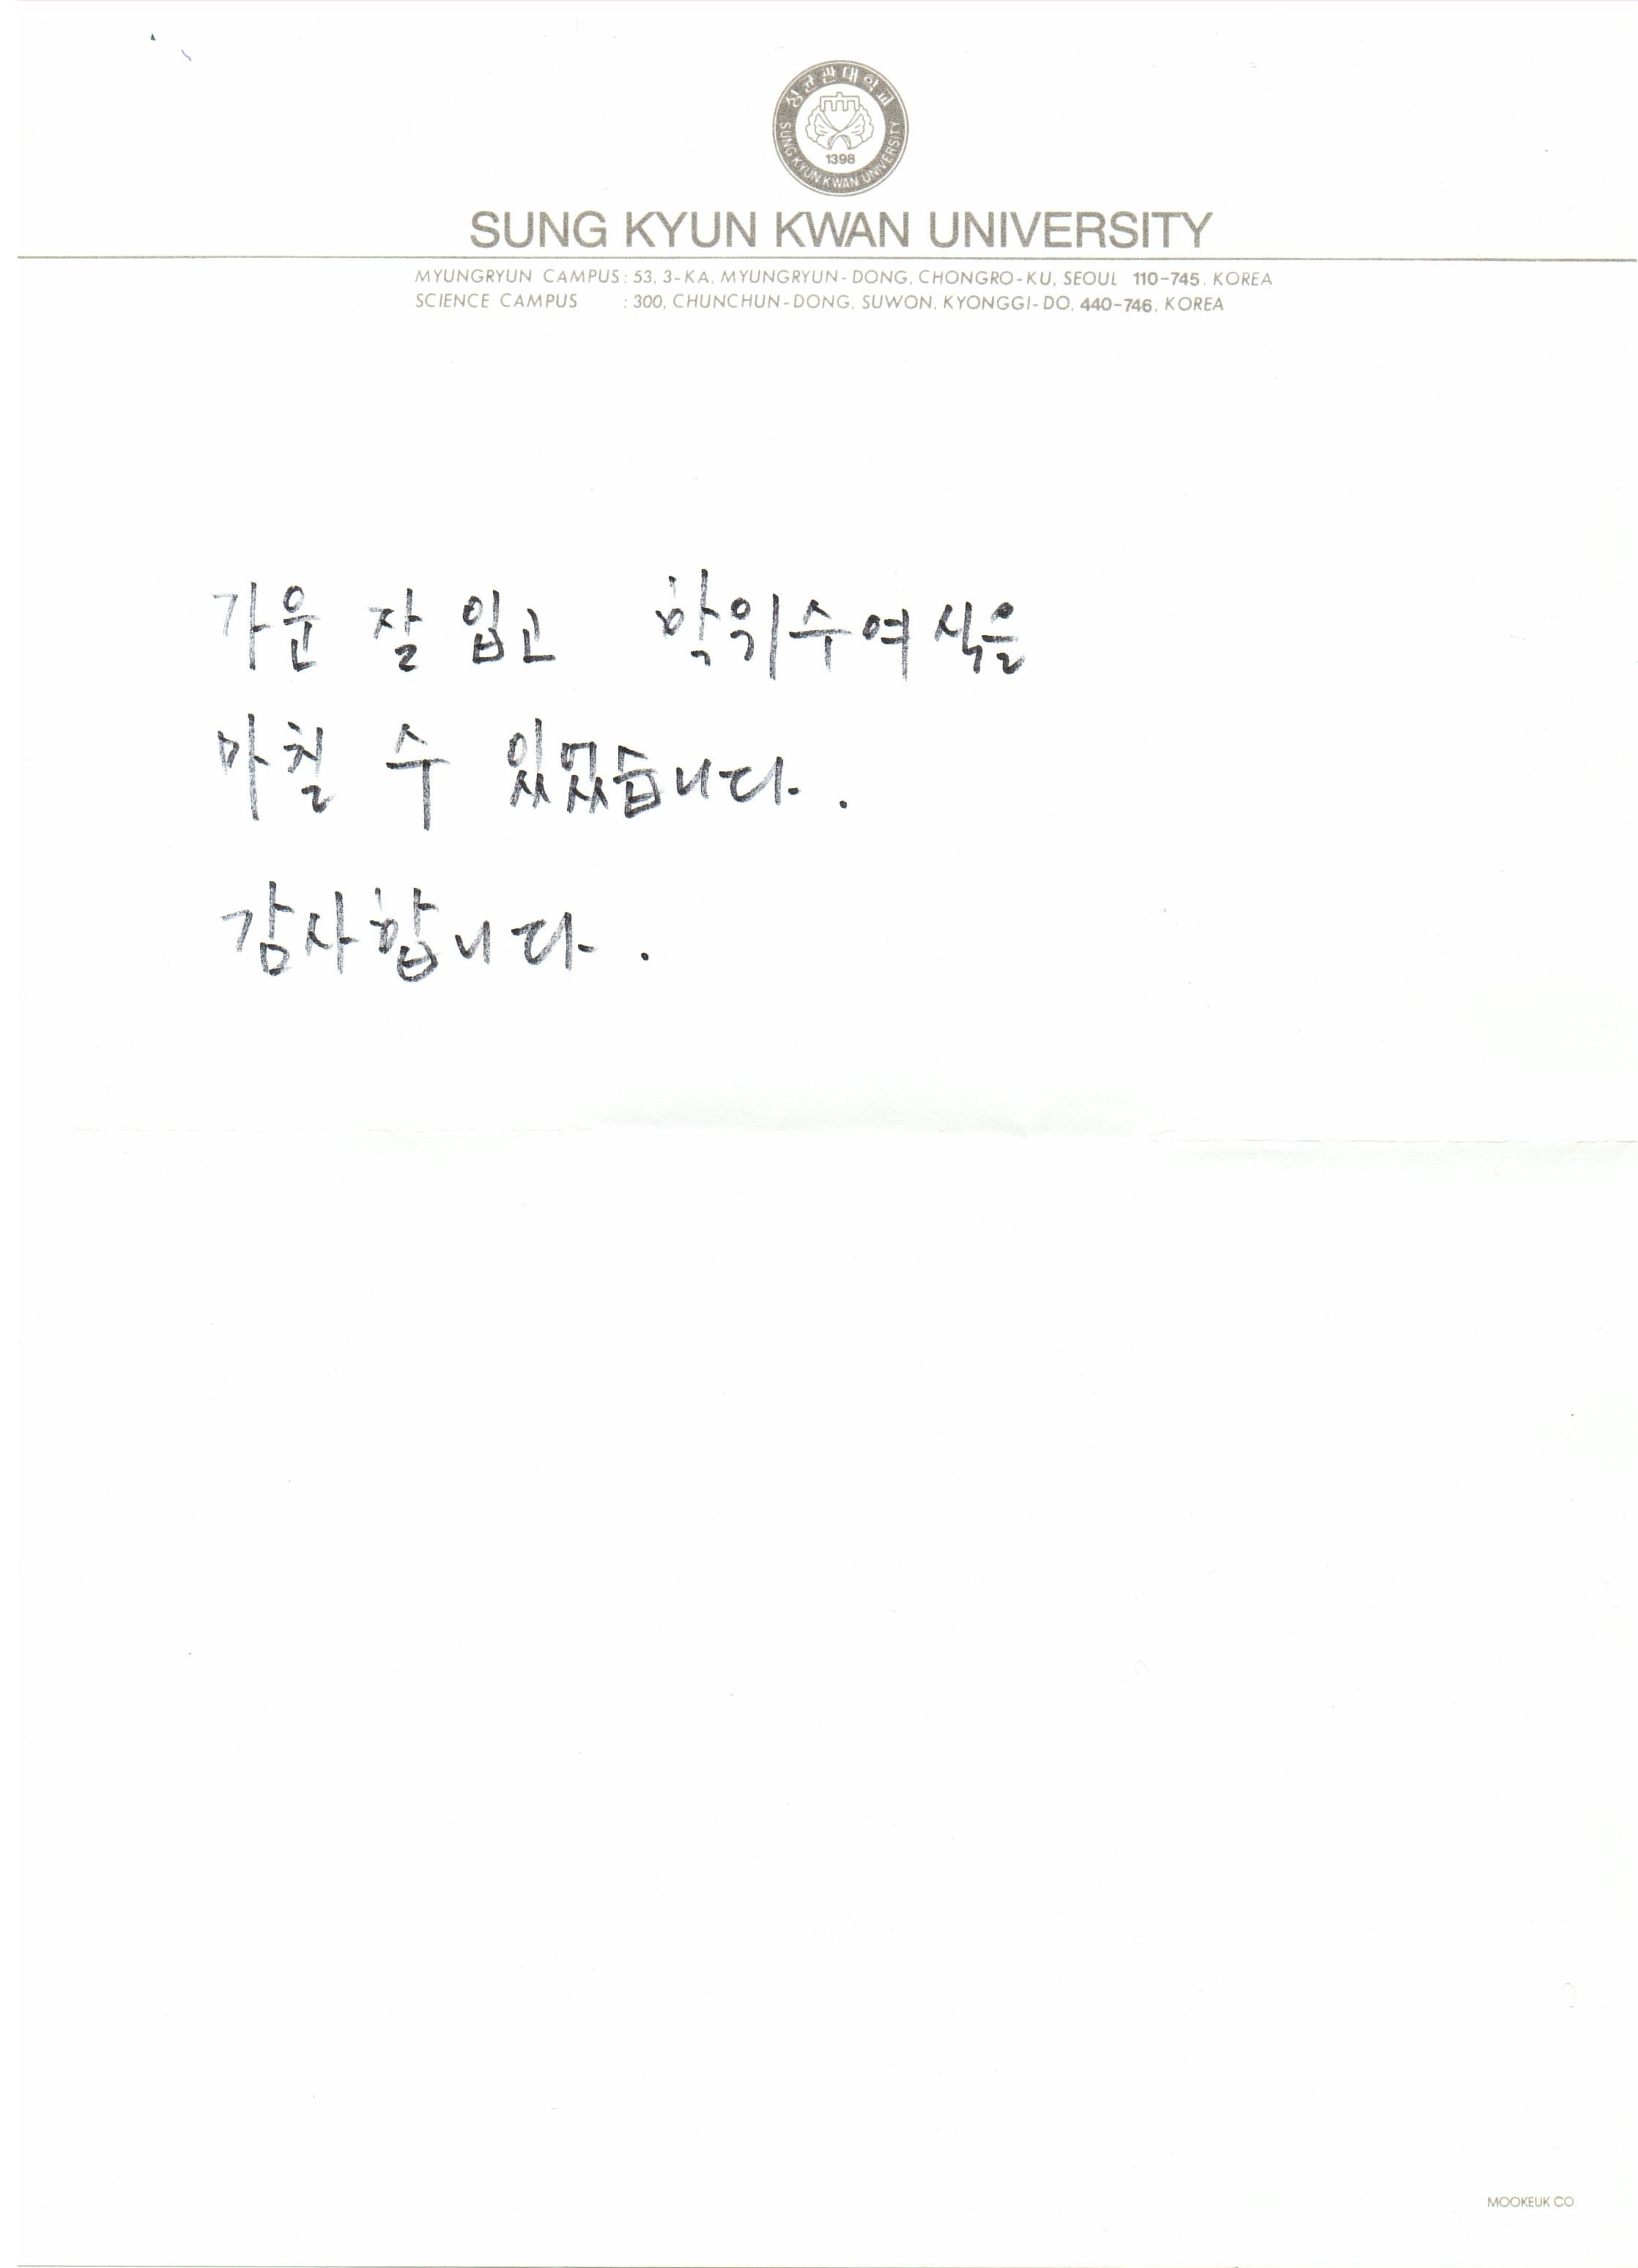 성균관대학교
1398
SUNG KYUN KWAN UNIVERSITY
SUNG KYUN KWAN UNIVERSITY
MYUNGRYUN CAMPUS : 53, 3-KA, MYUNGRYUN-DONG, CHONGRO-KU, SEOUL 110-745, KOREA
SCIENCE CAMPUS : 300, CHUNCHUN-DONG, SUWON, KYONGGI-DO, 440-746, KOREA
가운 잘 입고 학위수여식을
마칠 수 있었습니다.
감사합니다.
MOOKEUK CO.